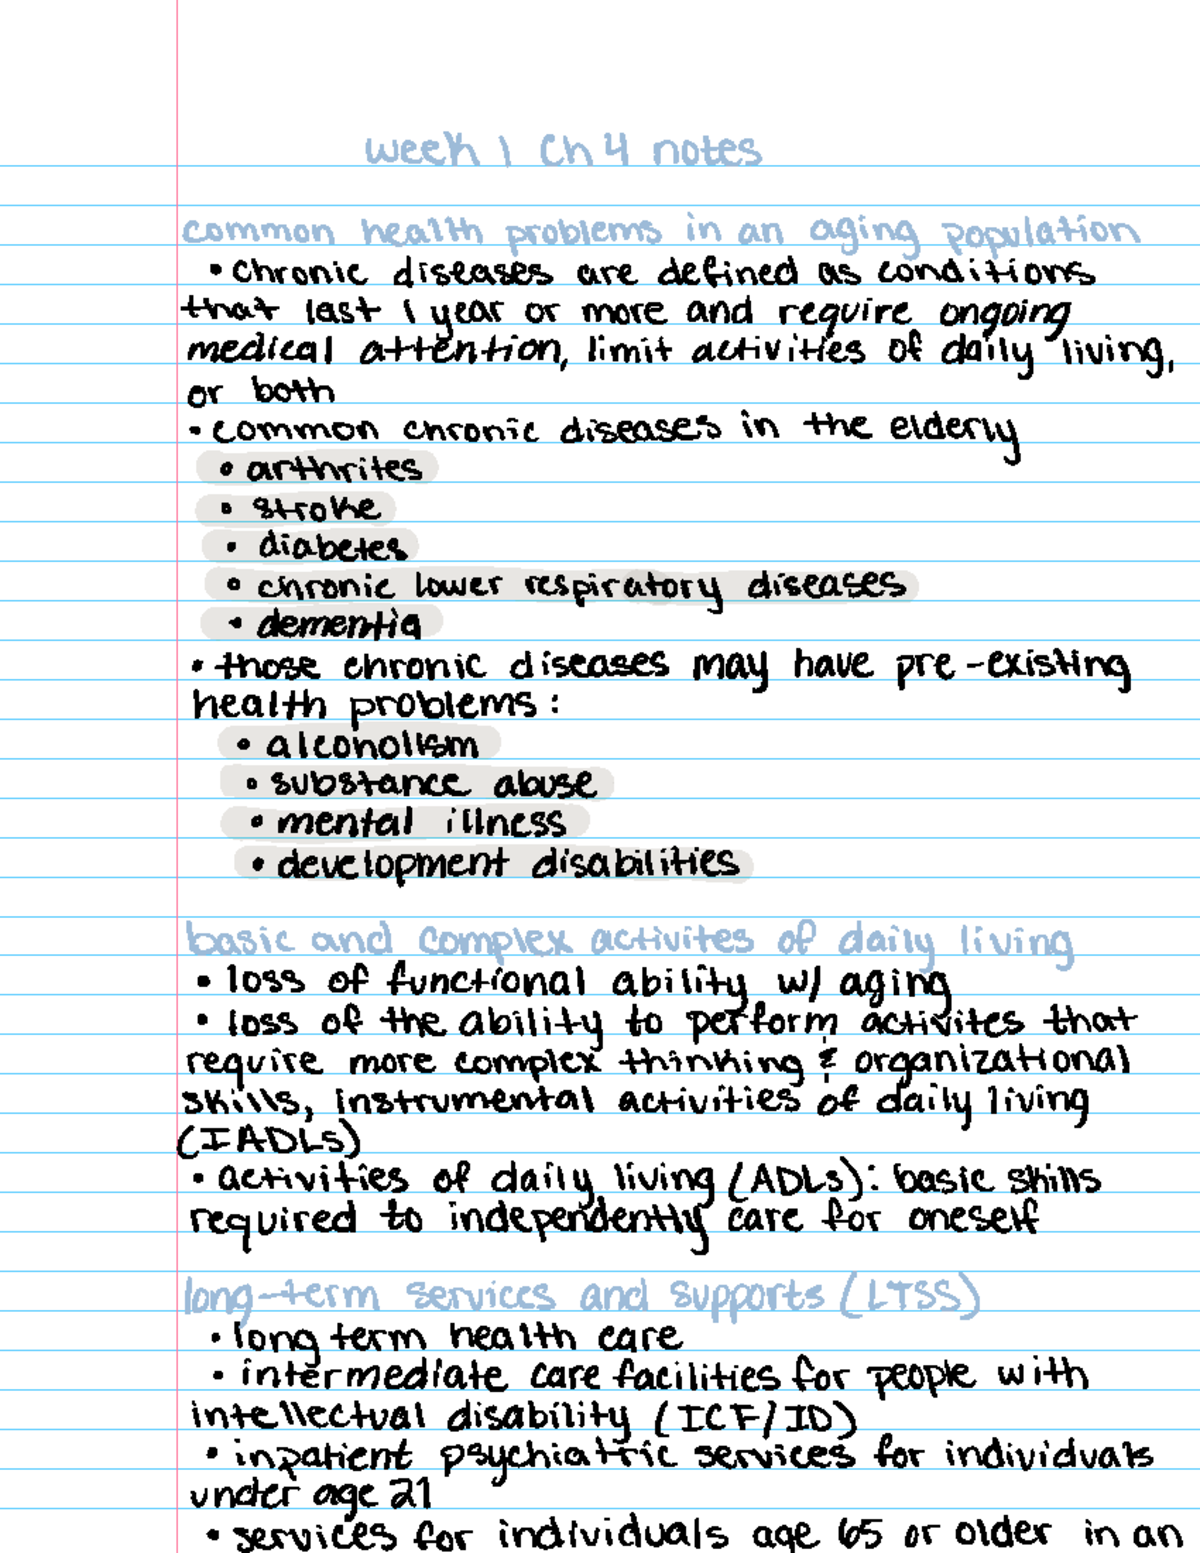 week 1 Ch 4 notes
common health problems in an aging population
• chronic diseases are defined as conditions
that last 1 year or more and require ongoing
medical attention, limit activities of daily living,
or both
• common chronic diseases in the elderly
• arthrites
• stroke
• diabetes
• chronic lower respiratory diseases
• dementia
• those chronic diseases may have pre-existing
health problems:
• alcoholism
• substance abuse
• mental illness
• development disabilities
basic and complex activites of daily living
• loss of functional ability w/ aging
• loss of the ability to perform activites that
require more complex thinking & organizational
skills, instrumental activities of daily living
(IADLs)
• activities of daily living (ADLs): basic skills
required to independently care for oneself
long-term services and supports (LTSS)
• long term health care
• intermediate care facilities for people with
intellectual disability (ICF/ID)
• inpatient psychiatric services for individuals
under age 21
• services for individuals age 65 or older in an